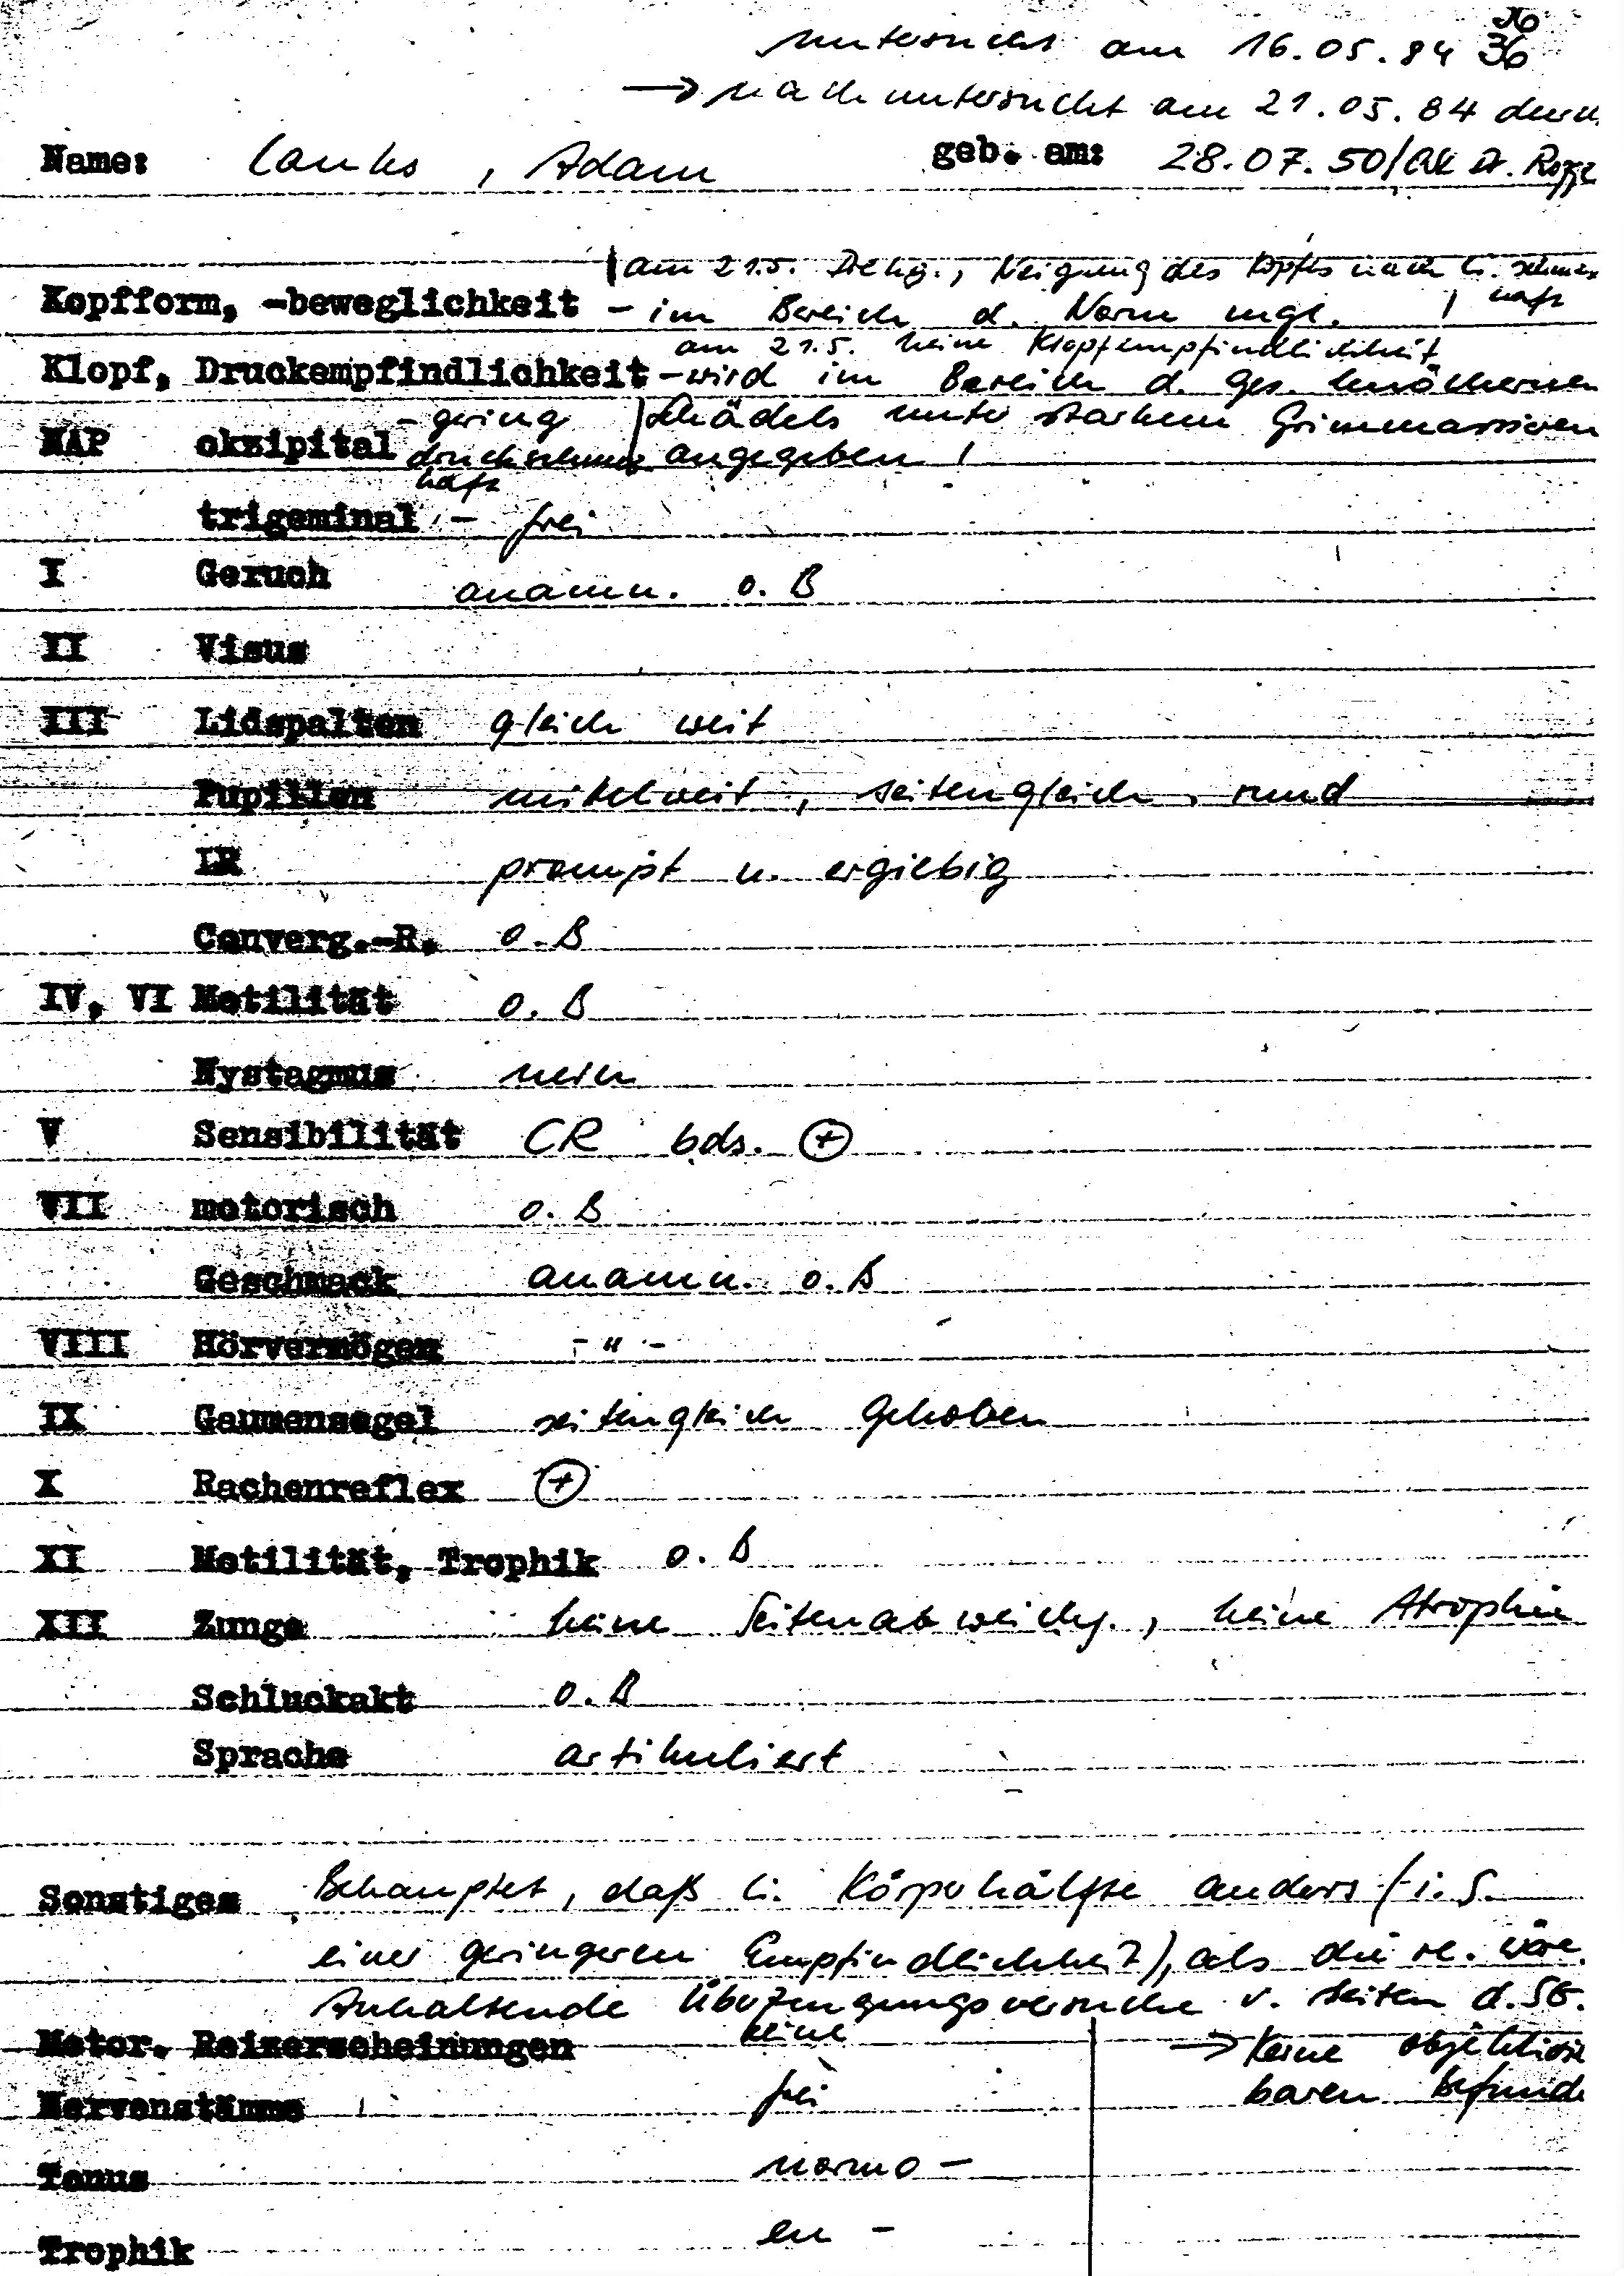 36
untersucht am 16.05.84 36
→ nachuntersucht am 21.05.84 durch
Name: Lauks, Adam geb. am: 28.07.50 / OA Dr.
am 21.5. Drehg., Neigung des Kopfes nach li. schmerzhaft
Kopfform, -beweglichkeit - im Bereich d. Norm !
am 21.5. keine Klopfempfindlichkeit
Klopf, Druckempfindlichkeit - wird im Bereich d. ges. knöchernen
NAP okzipital - gering druckschmerzhaft Schädels unter starkem Grimmassieren
angegeben !
trigeminal - frei
I Geruch anamn. o. B
II Visus
III Lidspalten gleich weit
Pupillen mittelweit, seitengleich, rund
LR prompt u. ergiebig
Converg.-R. o. B
IV, VI Motilität o. B
Nystagmus nein
V Sensibilität CR bds. ⊕
VII motorisch o. B
Geschmack anamn. o. B
VIII Hörvermögen - " -
IX Gaumensegel seitengleich gehoben
X Rachenreflex ⊕
XI Motilität, Trophik o. B
XII Zunge keine Seitenabweichg., keine Atrophie
Schluckakt o. B
Sprache artikuliert
Sonstiges Behauptet, daß li. Körperhälfte anders (i. S.
einer geringeren Empfindlichkeit), als die re. wäre.
Anhaltende Überzeugungsversuche v. seiten d. SG.
Motor. Reizerscheinungen keine → Keine objektivier
Nervenstämme frei baren Befunde
Tonus normo -
Trophik eu -